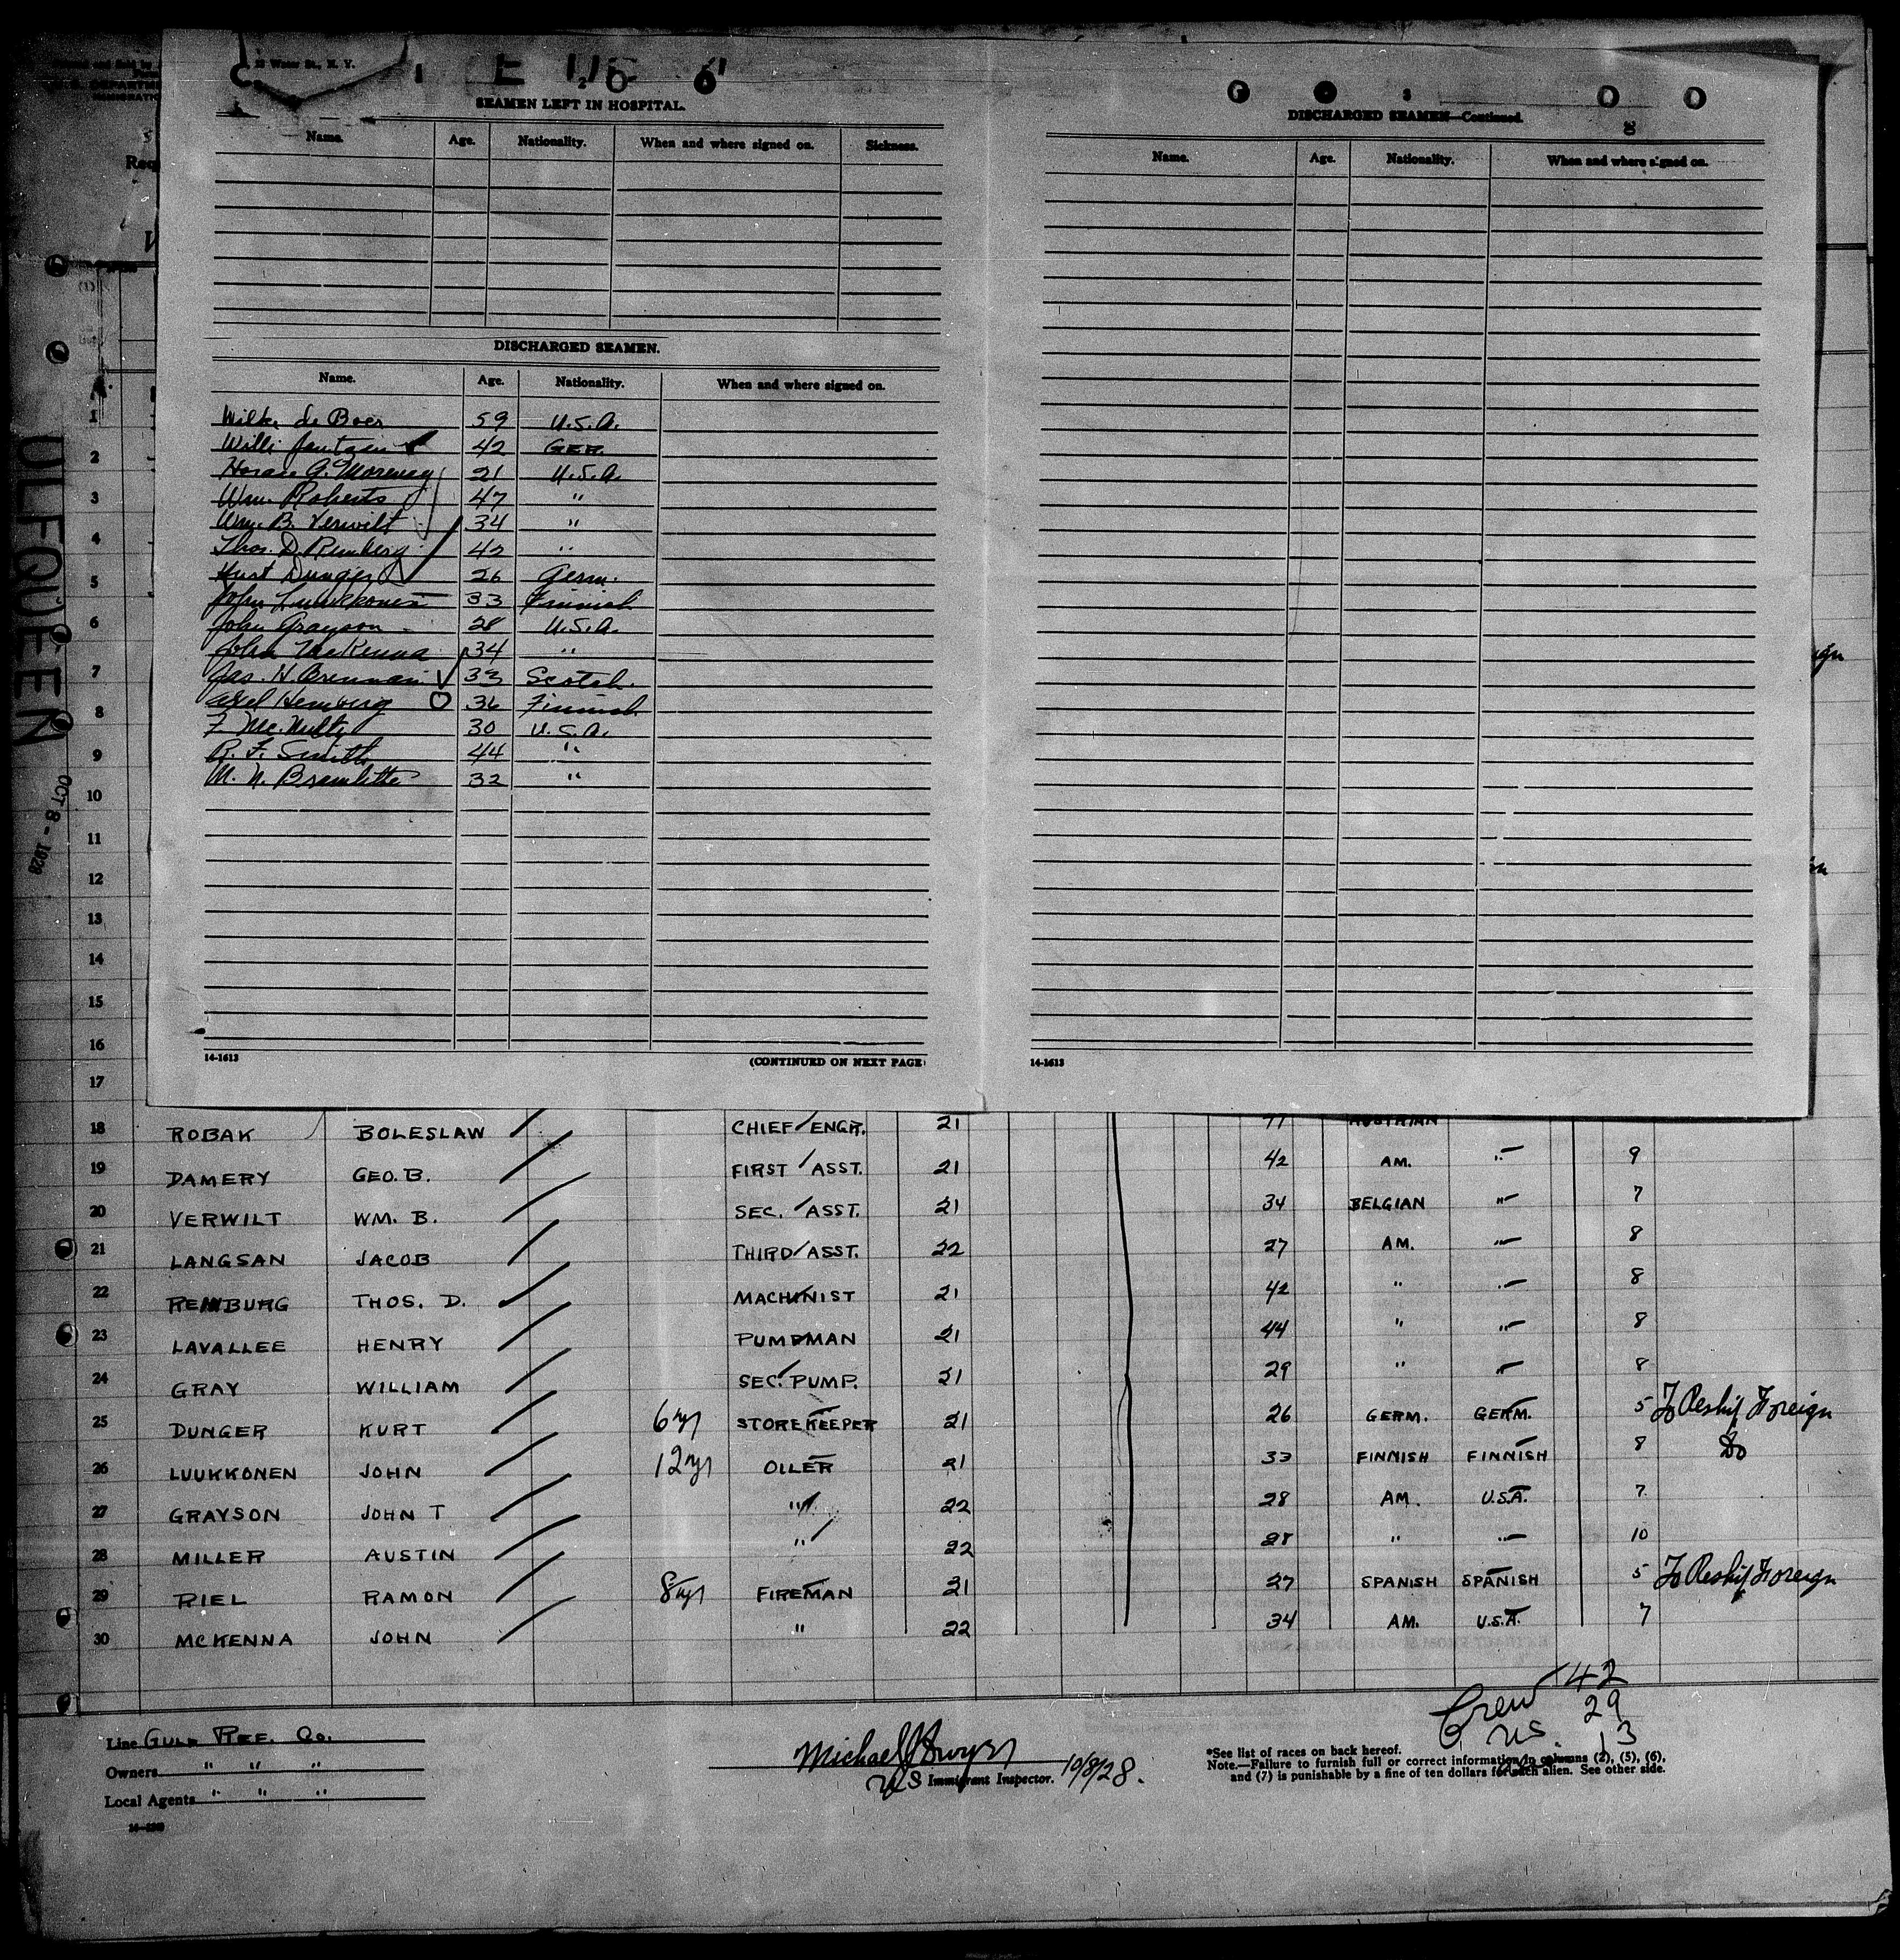 Water St., N. Y.
SEAMEN LEFT IN HOSPITAL.
Name. Age. Nationality. When and where signed on. Sickness.
DISCHARGED SEAMEN.
Name. Age. Nationality. When and where signed on.
de Boer 59 U.S.A.
Willi Jantzen 42 GER.
Horace G. 21 U.S.A.
Wm. Roberts 47 "
Wm. B. Verwilt 34 "
Thos. D. Remberg 42 "
Kurt Dunger 26 Germ.
John Luukkonen 33 Finnish
John Grayson 28 U.S.A.
John McKenna 34 "
Jas. H. Brennan 33 Scotch.
Axel Hemberg 36 Finnish
F. McNulty 30 U.S.A.
R. F. Smith 44 "
M. N. Bramlette 32 "
14-1613 (CONTINUED ON NEXT PAGE)
DISCHARGED SEAMEN—Continued.
Name. Age. Nationality. When and where signed on.
14-1613
ULFQUEEN
OCT 8 - 1928
1
2
3
4
5
6
7
8
9
10
11
12
13
14
15
16
17
18 ROBAK BOLESLAW CHIEF ENGR. 21 AUSTRIAN
19 DAMERY GEO. B. FIRST ASST. 21 42 AM. " 9
20 VERWILT WM. B. SEC. ASST. 21 34 BELGIAN " 7
21 LANGSAN JACOB THIRD ASST. 22 27 AM. " 8
22 REMBURG THOS. D. MACHINIST 21 42 " " 8
23 LAVALLEE HENRY PUMPMAN 21 44 " " 8
24 GRAY WILLIAM SEC. PUMP. 21 29 " " 8
25 DUNGER KURT 6 yr STOREKEEPER 21 26 GERM. GERM. 5 To Reship Foreign
26 LUUKKONEN JOHN 12 yr OILER 21 33 FINNISH FINNISH 8 Do
27 GRAYSON JOHN T " 22 28 AM. U.S.A. 7
28 MILLER AUSTIN " 22 28 " " 10
29 RIEL RAMON 8 yr FIREMAN 21 27 SPANISH SPANISH 5 To Reship Foreign
30 MCKENNA JOHN " 22 34 AM. U.S.A. 7
Crew 42
US 29
13
Line GULF REF. Co.
Owners " " "
Local Agents " " "
Michael J Dwyer 10/8/28.
US Immigrant Inspector.
*See list of races on back hereof.
Note.—Failure to furnish full or correct information in columns (2), (5), (6),
and (7) is punishable by a fine of ten dollars for each alien. See other side.